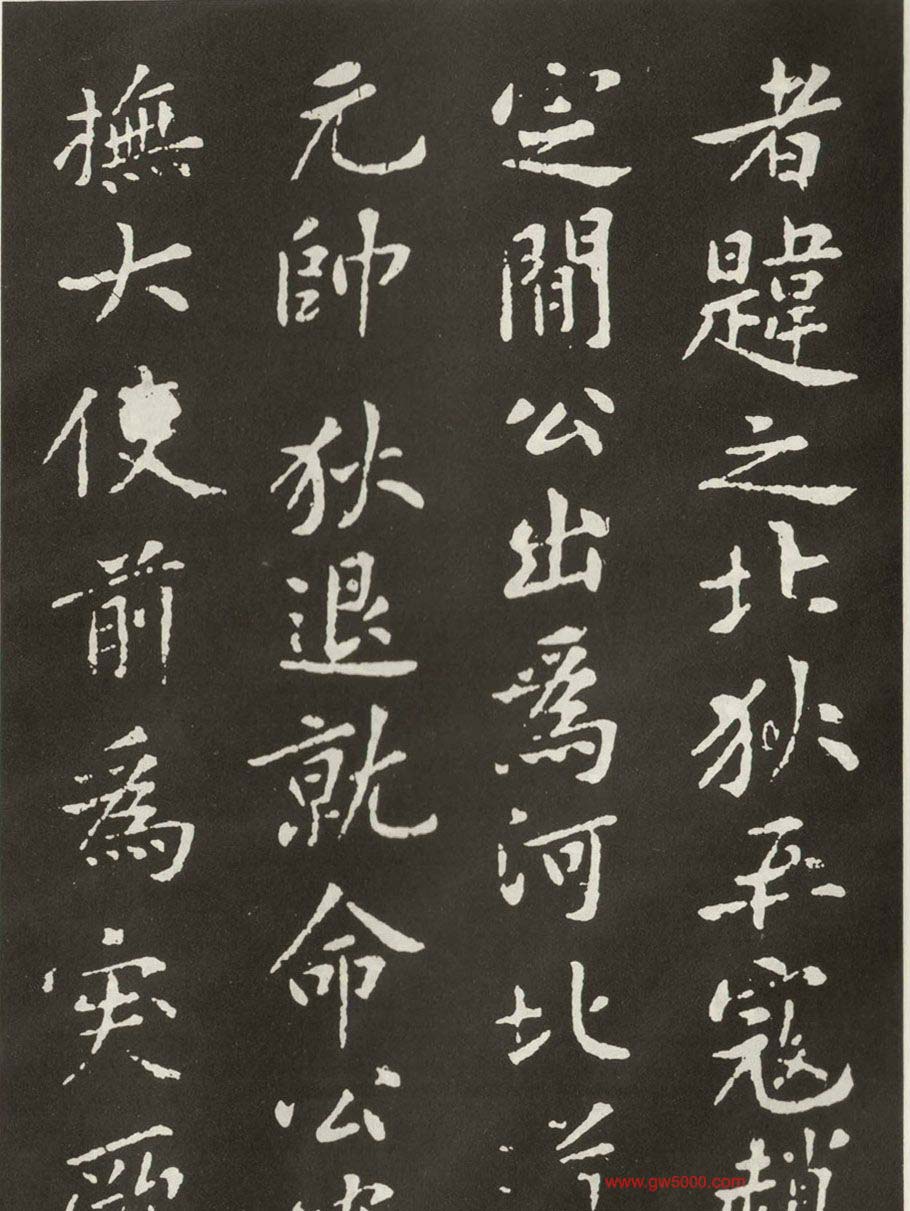 者韙之北狄平寇趙
定間公出為河北道
元帥狄退就命公安
撫大使前為突厥
www.gw5000.com